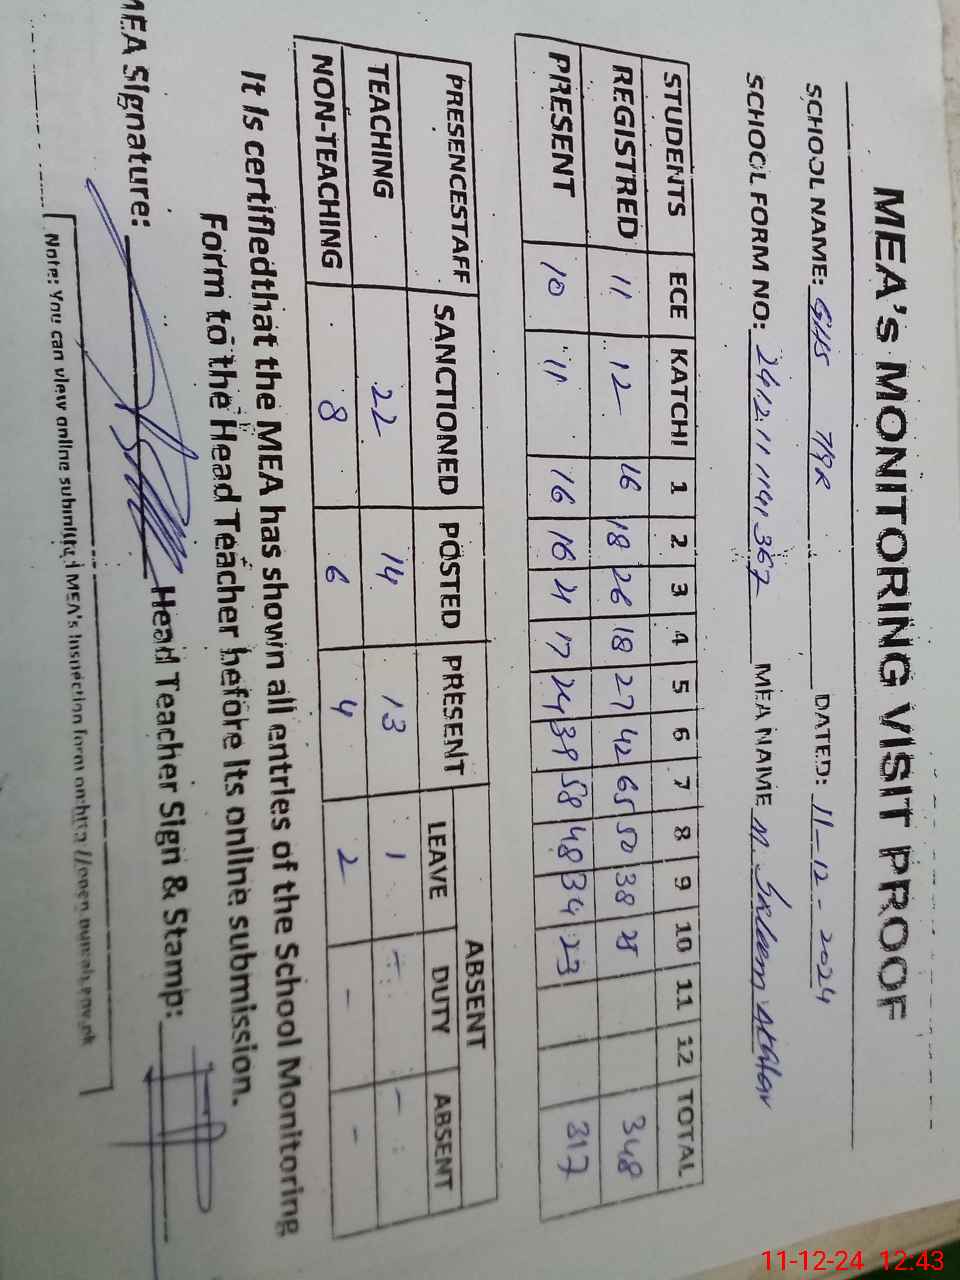 MEA's MONITORING VISIT PROOF
SCHOOL NAME: GHS 7/9R DATED: 11-12-2024
SCHOOL FORM NO: 2412111141367 MEA NAME M. Saleem Akhtar
STUDENTS ECE KATCHI 1 2 3 4 5 6 7 8 9 10 11 12 TOTAL
REGISTRED 11 12 16 18 26 18 27 42 65 50 38 25 348
PRESENT 10 11 16 16 21 17 24 39 58 48 34 23 317
PRESENCESTAFF SANCTIONED POSTED PRESENT ABSENT
LEAVE DUTY ABSENT
TEACHING 22 14 13 1 - -
NON-TEACHING 8 6 4 2 - -
It is certifiedthat the MEA has shown all entries of the School Monitoring
Form to the Head Teacher before its online submission.
MEA Signature: Head Teacher Sign & Stamp:
Note: You can view online submitted MEA's Inspection form on:http://open.punjab.gov.pk
11-12-24 12:43